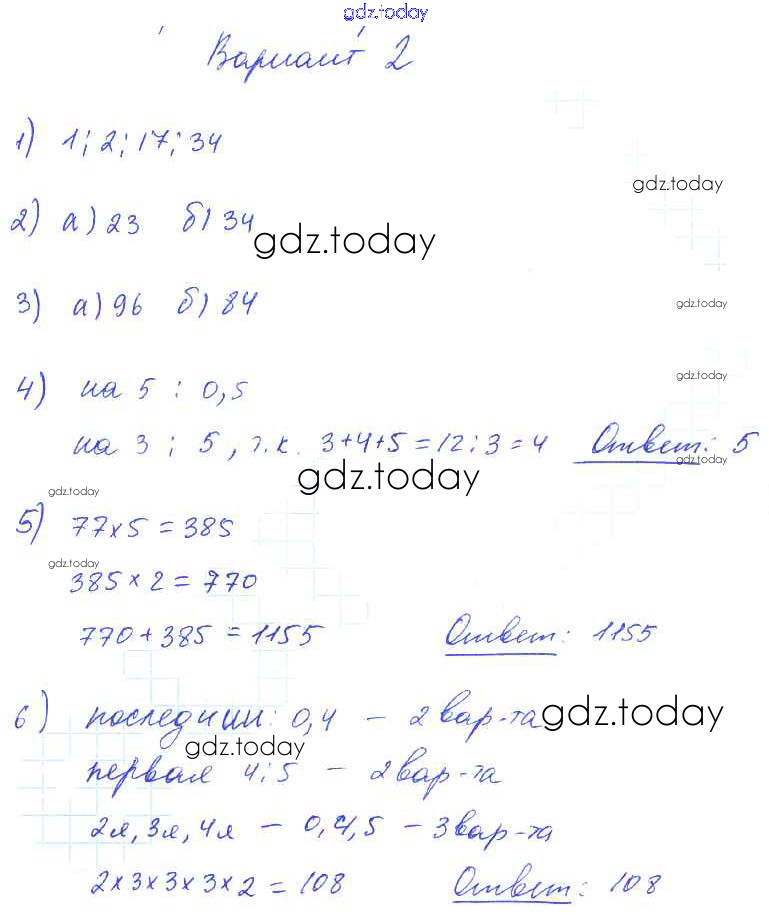 gdz.today
Вариант 2
1) 1; 2; 17; 34
gdz.today
2) а) 23 б) 34
gdz.today
3) а) 96 б) 84
gdz.today
4) на 5 : 0,5
gdz.today
на 3 ; 5, т.к. 3+4+5=12:3=4 Ответ: 5
gdz.today
gdz.today
gdz.today
5) 77×5=385
gdz.today
385×2=770
770+385=1155 Ответ: 1155
6) последнии: 0,4 – 2 вар-та
gdz.today
gdz.today
первая 4;5 – 2 вар-та
2я, 3я, 4я – 0,4,5 – 3 вар-та
2×3×3×3×2=108 Ответ: 108